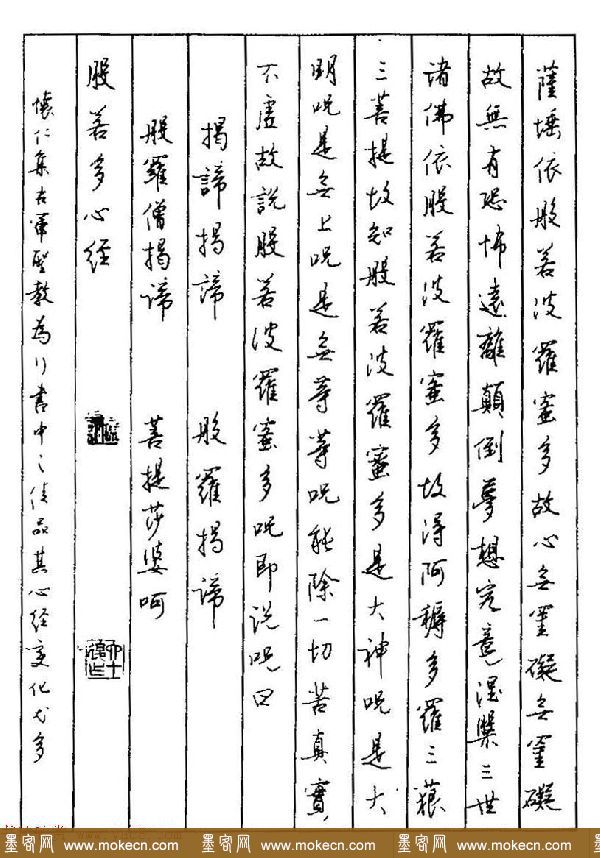 薩埵依般若波羅蜜多故心無罣礙無罣礙
故無有恐怖遠離顛倒夢想究竟涅槃三世
諸佛依般若波羅蜜多故得阿耨多羅三藐
三菩提故知般若波羅蜜多是大神咒是大
明咒是無上咒是無等等咒能除一切苦真實
不虛故說般若波羅蜜多咒即說咒曰
揭諦揭諦 般羅揭諦
般羅僧揭諦 菩提莎婆呵
般若多心經
懷仁集右軍聖教為行書中之佳品其心經變化尤多
墨客网 www.mokecn.com 墨客网 www.mokecn.com 墨客网 www.mokecn.com